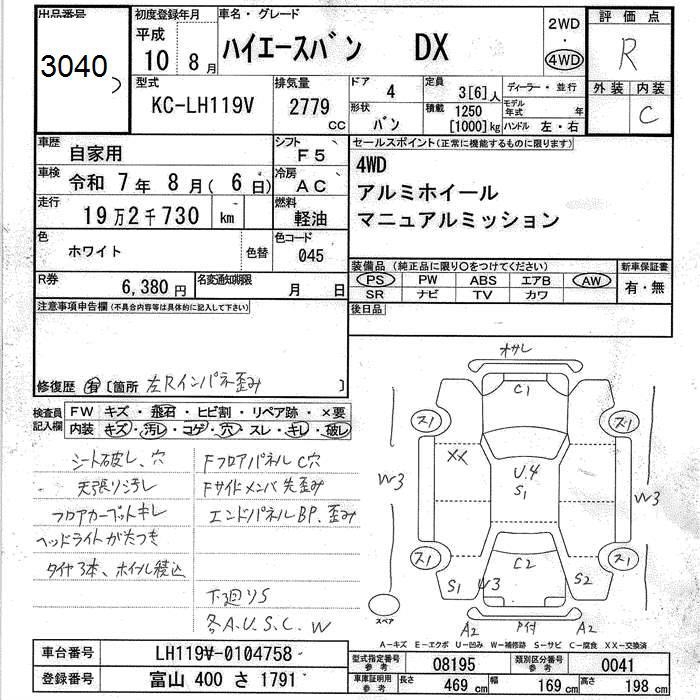 出品番号
3040
初度登録年月
平成
10年 8月
車名・グレード
ハイエースバン DX
2WD
・
4WD
評価点
R
外装 内装
C
型式
KC-LH119V
排気量
2779
CC
ドア
4
定員
3[6]人
ディーラー・並行
形状
バン
積載
1250
[1000]kg
モデル年式 年
ハンドル 左・右
車歴
自家用
シフト
F5
車検
令和 7年 8月( 6日)
冷房
AC
走行
19万2千730 km
燃料
軽油
色
ホワイト
色替
色コード
045
R券
6,380円
名変通知期限
月 日
セールスポイント(正常に機能するものに限ります)
4WD
アルミホイール
マニュアルミッション
装備品 (純正品に限り○をつけてください)
新車保証書
PS PW ABS エアB AW
SR ナビ TV カワ
有・無
後日品
注意事項申告欄(不具合内容等は具体的に記入して下さい)
修復歴 有 [箇所 左Rインパネ歪み ]
検査員記入欄
FW キズ・飛石・ヒビ割・リペア跡・×要
内装 キズ・汚レ・コゲ・穴・スレ・キレ・破レ
シート破レ、穴
天張り汚レ
フロアカーペットキレ
ヘッドライトがたつき
タイヤ3本、ホイル積込
FフロアパネルC穴
Fサイドメンバ先歪み
エンドパネルBP、歪み
下廻りS
各A.U.S.C.W
オサレ
C1
ス1
ス1
XX
U4
S1
W3
W3
ス1
ス1
C2
S1
W3
S2
スペア
A2
A2
A-キズ E-エクボ U-凹み W-補修跡 S-サビ C-腐食 XX-交換済
車台番号
LH119V-0104758
登録番号
富山 400 さ 1791
型式指定番号
参考
08195
類別区分番号
参考
0041
車庫証明用
参考
長さ
469cm
幅
169cm
高さ
198cm